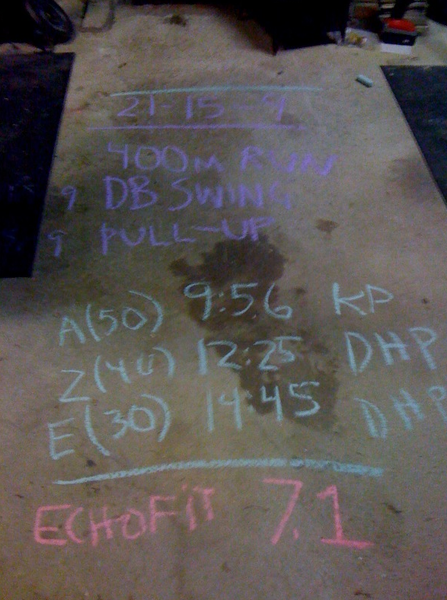 21-15-9
400m RUN
9 DB SWING
9 PULL-UP
A(50) 9:56 KP
Z(40) 12:25 DHP
E(30) 14:45 DHP
ECHOFiT 7.1